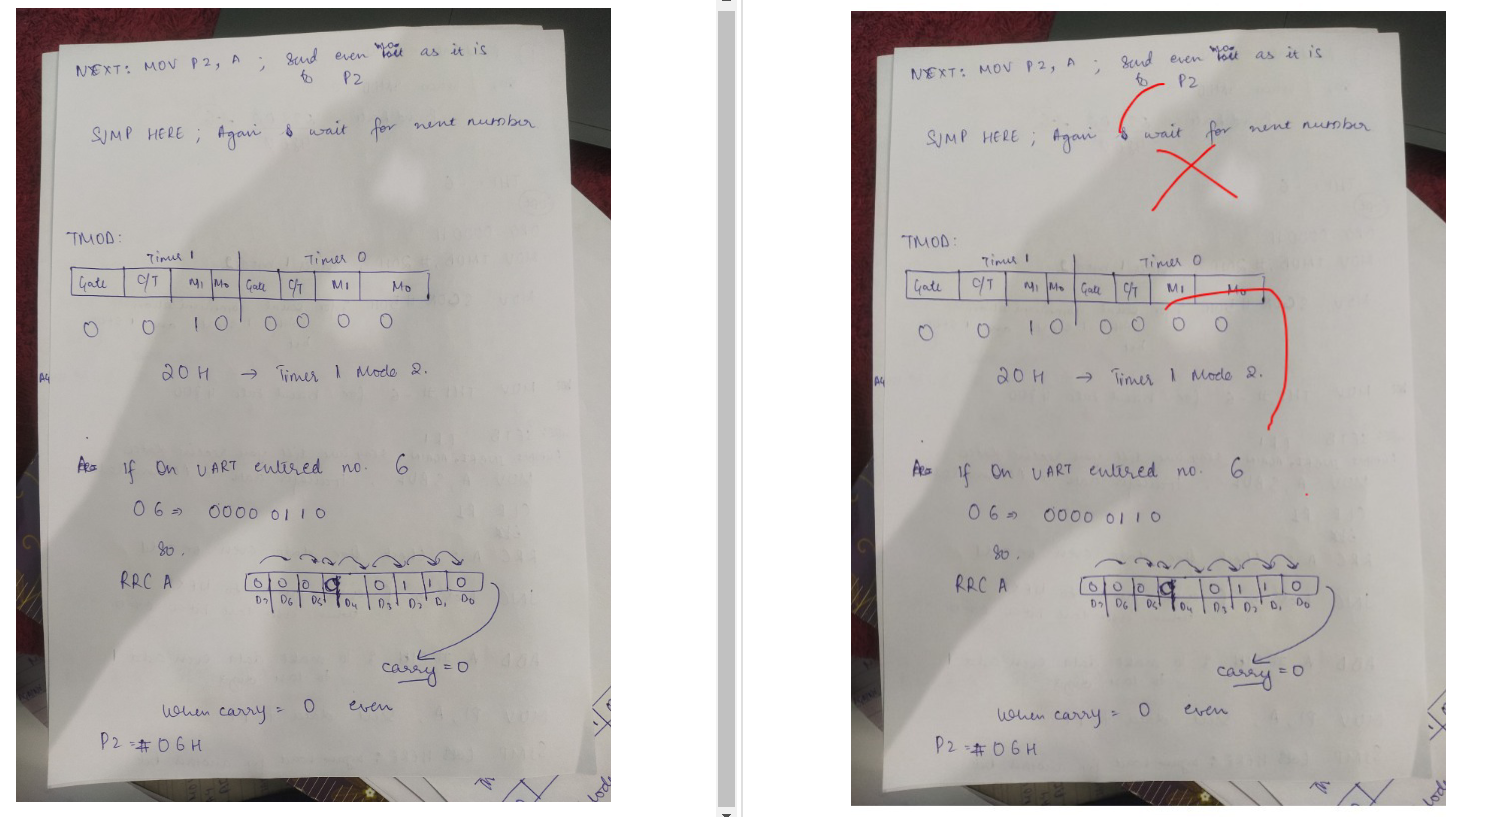 NEXT: MOV P2, A ; Send even no. as it is
to P2
SJMP HERE ; Again & wait for next number
TMOD:
Timer 1 Timer 0
Gate C/T M1 M0 Gate C/T M1 M0
0 0 1 0 0 0 0 0
20H → Timer 1 Mode 2.
If On UART entered no. 6
06 ⇒ 0000 0110
so.
RRC A 0 0 0 0 0 1 1 0
D7 D6 D5 D4 D3 D2 D1 D0
carry = 0
When carry = 0 even
P2 = #06H
NEXT: MOV P2, A ; Send even no. as it is
to P2
SJMP HERE ; Again & wait for next number
TMOD:
Timer 1 Timer 0
Gate C/T M1 M0 Gate C/T M1 M0
0 0 1 0 0 0 0 0
20H → Timer 1 Mode 2.
If On UART entered no. 6
06 ⇒ 0000 0110
so.
RRC A 0 0 0 0 0 1 1 0
D7 D6 D5 D4 D3 D2 D1 D0
carry = 0
When carry = 0 even
P2 = #06H